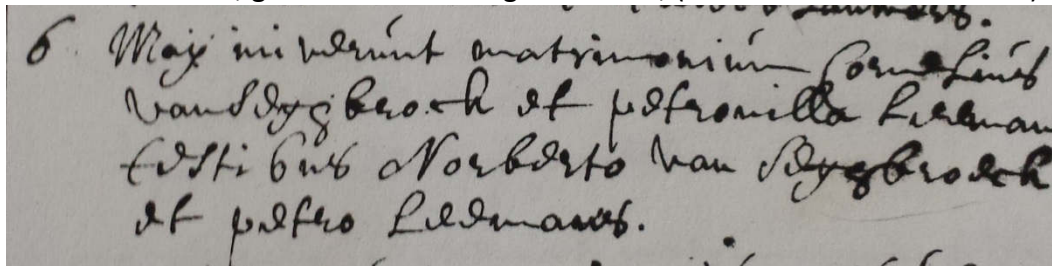 6 Maij inierunt matrimonium Cornelius
van Seyghbroeck et petronilla Leeman
testibus Norberto van Seyghbroeck
et petro Leemans.